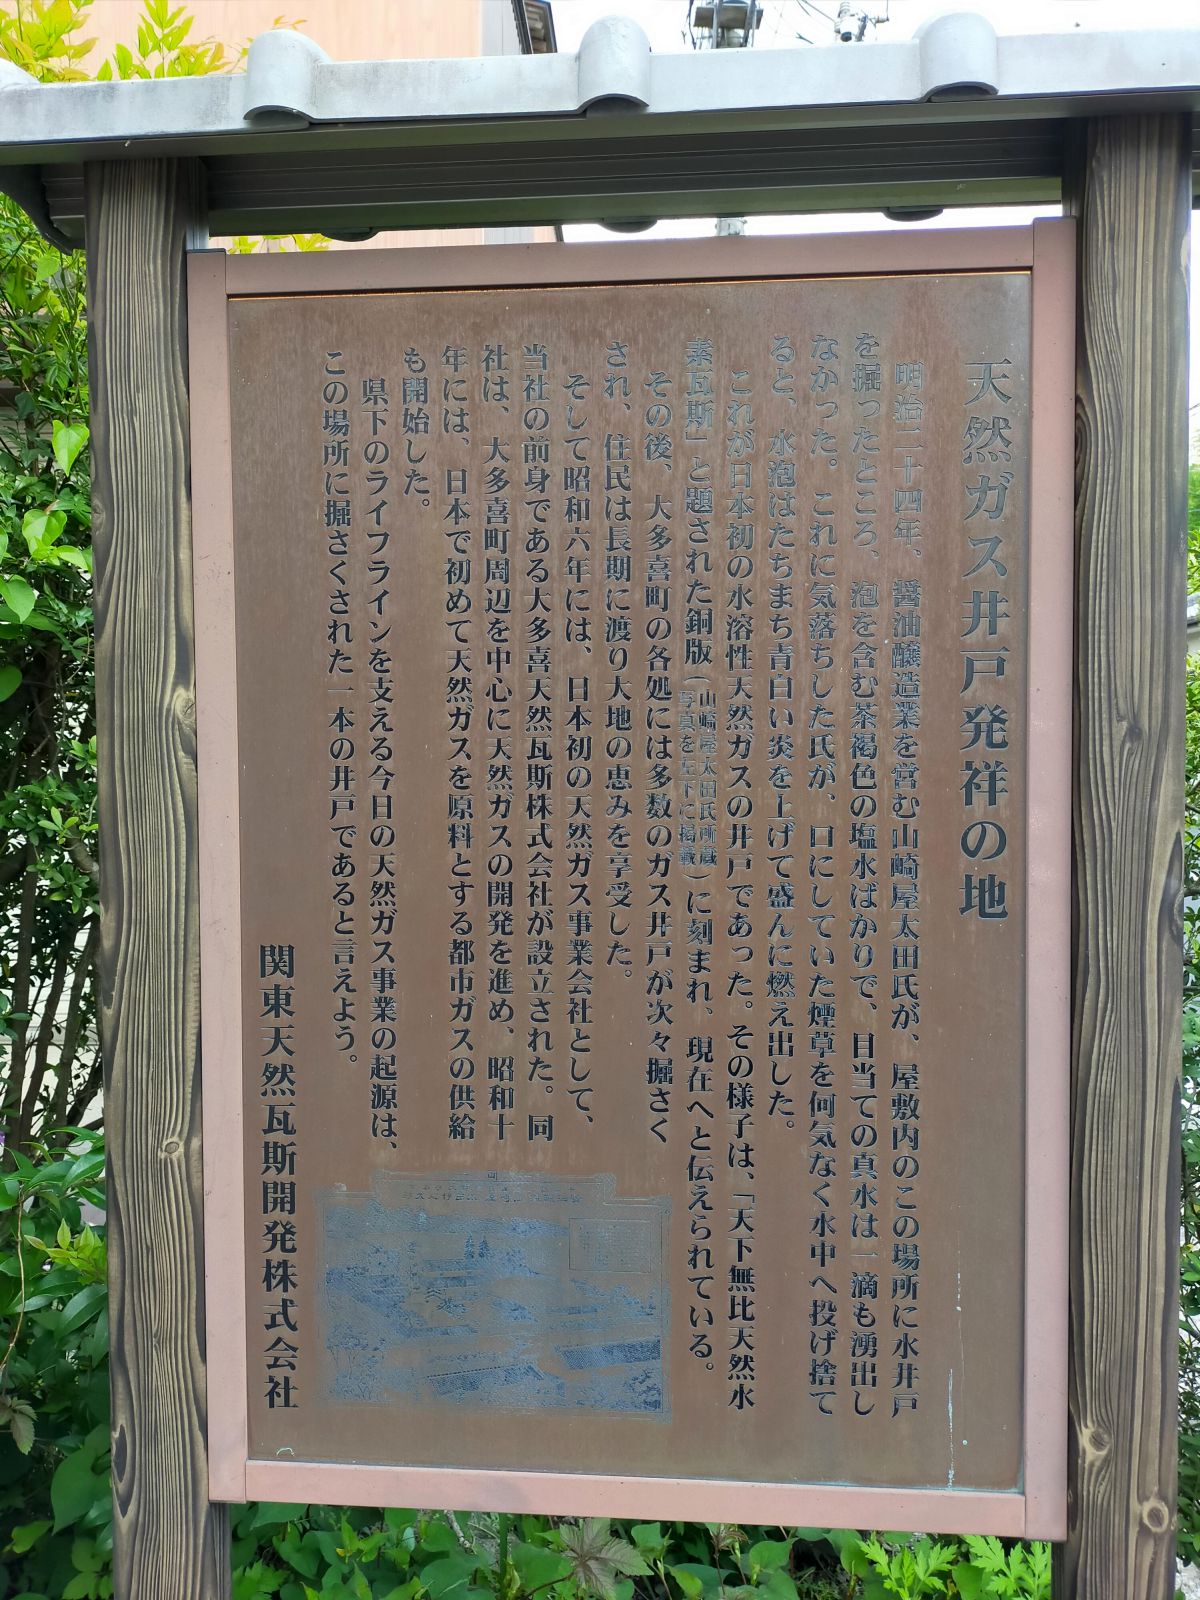 天然ガス井戸発祥の地
明治二十四年、醤油醸造業を営む山崎屋太田氏が、屋敷内のこの場所に水井戸
を掘ったところ、泡を含む茶褐色の塩水ばかりで、目当ての真水は一滴も湧出し
なかった。これに気落ちした氏が、口にしていた煙草を何気なく水中へ投げ捨て
ると、水泡はたちまち青白い炎を上げて盛んに燃え出した。
これが日本初の水溶性天然ガスの井戸であった。その様子は、「天下無比天然水
素瓦斯」と題された銅版(山崎屋太田氏所蔵 写真を左下に掲載)に刻まれ、現在へと伝えられている。
その後、大多喜町の各処には多数のガス井戸が次々掘さく
され、住民は長期に渡り大地の恵みを享受した。
そして昭和六年には、日本初の天然ガス事業会社として、
当社の前身である大多喜天然瓦斯株式会社が設立された。同
社は、大多喜町周辺を中心に天然ガスの開発を進め、昭和十
年には、日本で初めて天然ガスを原料とする都市ガスの供給
も開始した。
県下のライフラインを支える今日の天然ガス事業の起源は、
この場所に掘さくされた一本の井戸であると言えよう。
関東天然瓦斯開発株式会社